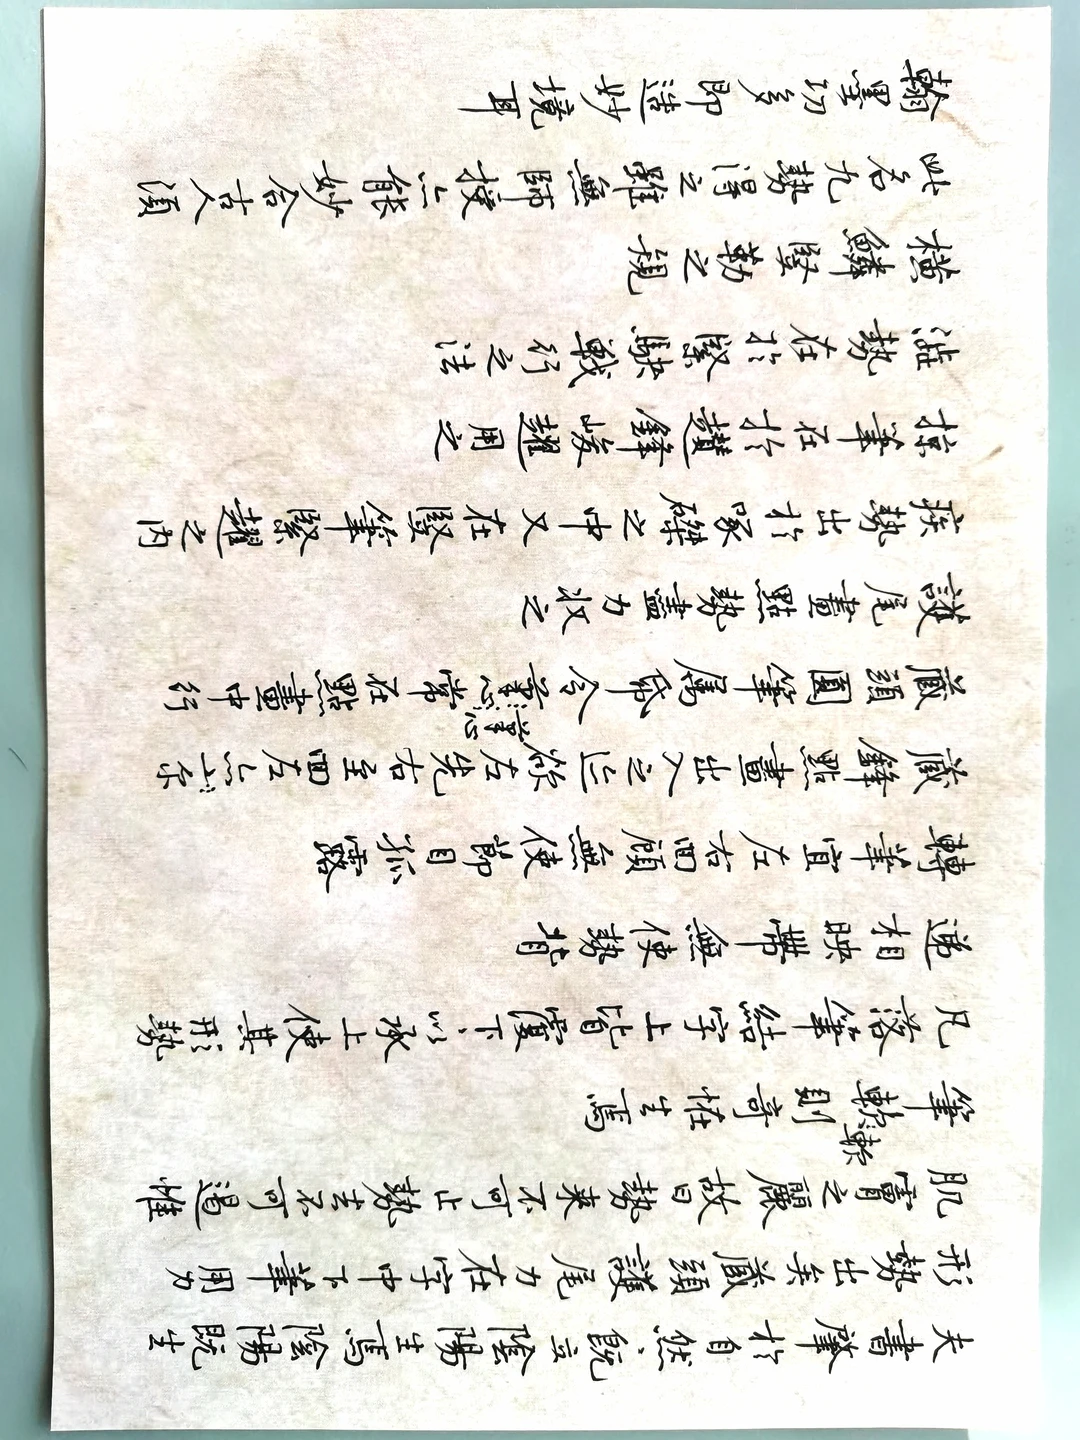 夫書肇於自然、既立陰陽生焉陰陽既生
形勢出矣藏頭護尾力在字中下筆用力
肌膚之麗故曰勢来不可止勢去不可遏惟
筆軟則奇怪生焉
軟
凡落筆結字上皆覆下、以承上使其形勢
递相映帶無使勢背
轉筆宜左右回顧無使節目孤露
藏鋒點畫出入之迹欲左先右至回左亦尔
藏頭圓筆屬紙令筆心常在點畫中行
筆心
護尾畫點勢盡力收之
疾勢出於啄磔之中又在豎筆緊趯之内
掠筆在於趲鋒峻趯用之
澁勢在於緊駃戰行之法
橫鱗竪勒之規
此名九勢得之雖無師授亦能妙合古人須
翰墨功多即造妙境耳